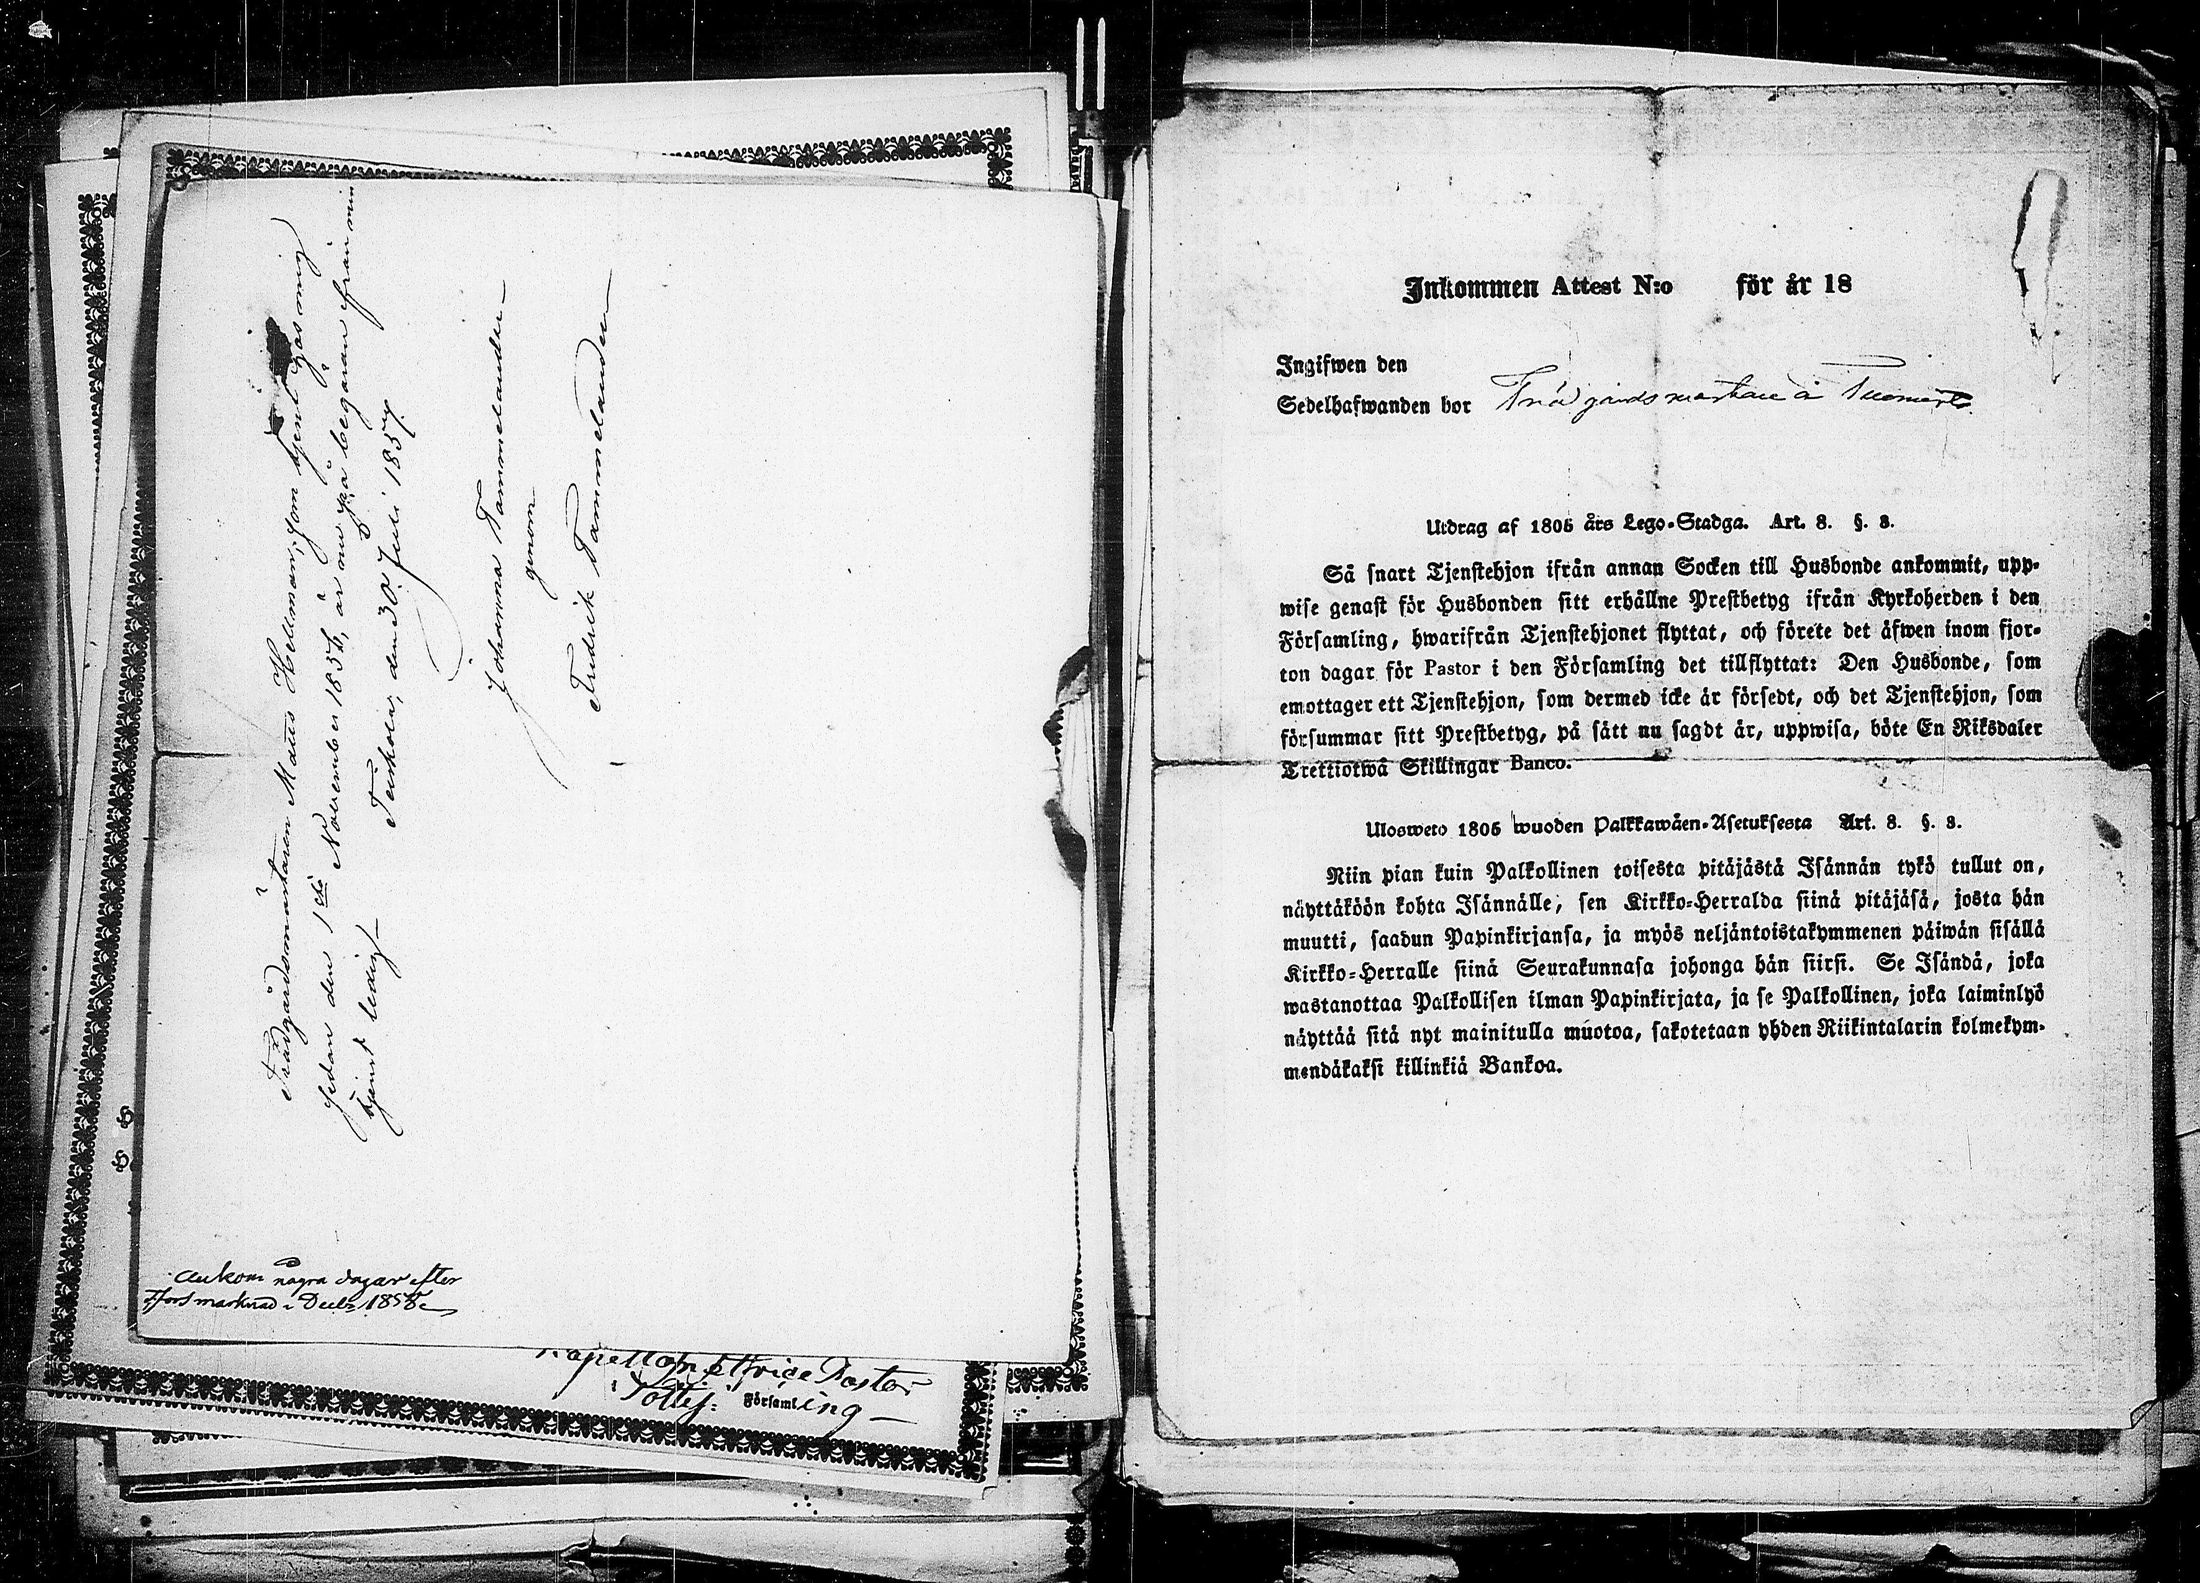 Trädgårdsmästaren Matts Hellman, som tjent hos mig
sedan den 1sta November 1856, är nu på begäran från min
tjenst ledig
Turkola, den 30 Juli 1857.
Johanna Tammelander
genom
Fredrik Tammelander
ankom några dagar efter
T:fors marknad i Decbr 1858.
Kapellan Pastor
i Församl ing
Inkommen Attest N:o för år 18
Ingifwen den
Sedelhafwanden bor Trädgårdsmästare å
Utdrag af 1805 års Lego-Stadga. Art. 8. §. 8.
Så snart Tjenstehjon ifrån annan Socken till Husbonde ankommit, upp-
wise genast för Husbonden sitt erhållne Prestbetyg ifrån Kyrkoherden i den
Församling, hwarifrån Tjenstehjonet flyttat, och förete det äfwen inom fjor-
ton dagar för Pastor i den Församling det tillflyttat: Den Husbonde, som
emottager ett Tjenstehjon, som dermed icke är försedt, och det Tjenstehjon, som
försummar sitt Prestbetyg, på sätt nu sagdt är, uppwisa, böte En Riksdaler
Trettiotwå Skillingar Banco.
Ulosweto 1805 wuoden Palkkawäen-Asetuksesta Art. 8. §. 8.
Niin pian kuin Palkollinen toisesta pitäjästä Isännän tykö tullut on,
näyttäköön kohta Isännälle, sen Kirkko-Herralda siinä pitäjäsä, josta hän
muutti, saadun Papinkirjansa, ja myös neljäntoistakymmenen päiwän sisällä
Kirkko-Herralle siinä Seurakunnasa johonga hän siirsi. Se Isändä, joka
wastanottaa Palkollisen ilman Papinkirjata, ja se Palkollinen, joka laiminlyö
näyttää sitä nyt mainitulla muotoa, sakotetaan yhden Riikintalarin kolmekym-
mendäkaksi killinkiä Bankoa.